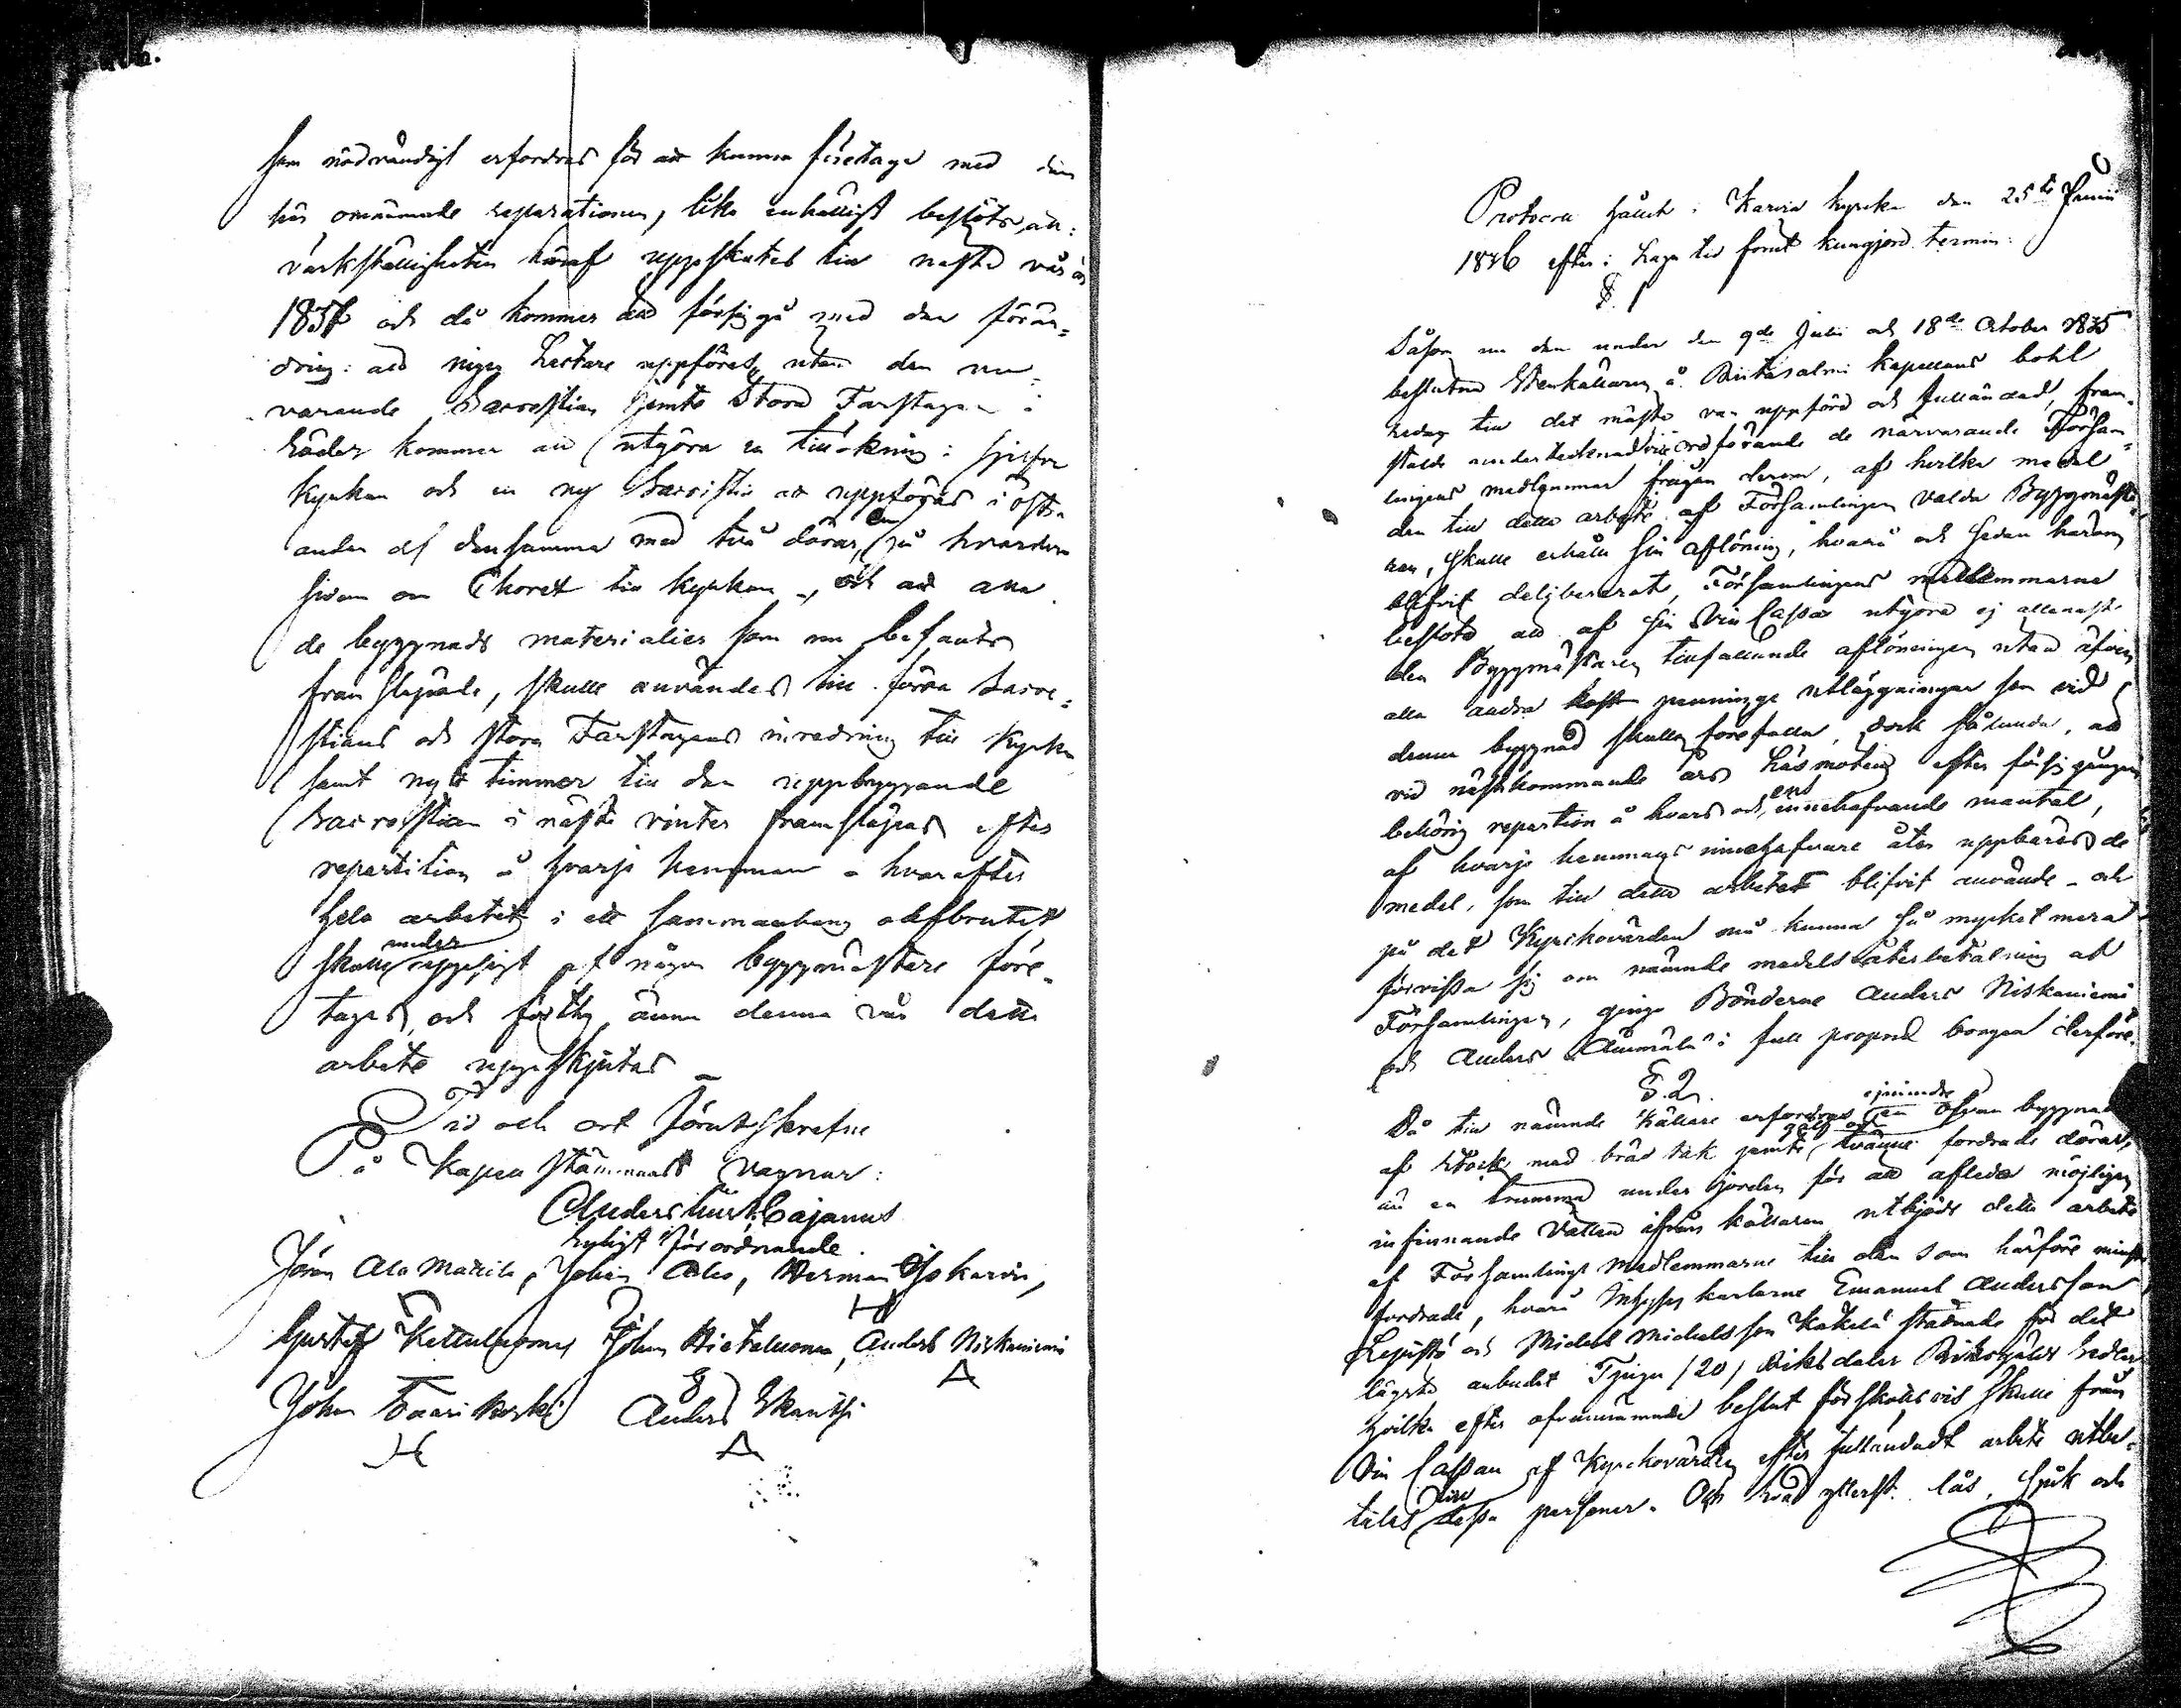 som nödvändigt erfordras för att kunna företaga med den
här omnämnde reparationen, lika enhälligt beslöts, att
värkställigheten häraf uppskutes till nästa vår år
1837 och då kommer att försiggå med den förän-
dring: att ingen Lectare uppföres, utan den nu-
varande Sacrestian jemte Stora Farstugan i
kommer att utgöra en tillökning i sjelfva
Kyrkan och en ny Sacristia att uppföras i östra
ändan af densamma med två dörar, en på hvardera
sidan om Choret till kyrkan, och att alla
de byggnads materialier som nu befants
framsläpade, skulle användas till förra Sacre-
stians och stora Farstugans inredning till Kyrka
samt nytt timmer till den uppbyggande
Sacrestian i nästa vinter framsläpas efter
repartition å hvarje hemman - hvarefter
hela arbetet i ett sammanhang oafbrutet
skulle under uppsigt af någon byggmästare före-
tagas, och förthy änn denna vår detta
arbete uppskjutas
Tid och ort förutskrefne
På Kapell stämmans vagnar:
Anders Cajanus
enligt förordnande.
Jöran Ala Mattila, Johan Alho, Herman Ojakarvi,
Gustaf Kettuluoma Johan Hietaluoma, Anders Niskaniemi
Johan Taarikoski Anders Skantsi
Protocoll hållit i Karvia kyrka den 25te Junii
1836 efter i laga tid förut kungjord termin:
§. 1
Såsom nu den under den 9de Julii och 18de October 1835
beslutna Stenkällaren å Kapellans bohl
redan till det mästa var uppförd och fulländad, fram-
stälde undertecknad ordförande de närvarande Försam-
lingens medlemmar frågan derom, af hvilka medel
den till detta arbete af Församlingen valda Byggmästa-
ren, skulle erhålla sin aflöning, hvarå och sedan härom
blifvit delibererat, Församlingens medlemmarne
beslöto att af sin Vin Cassa utgöra ej allenast
den Byggmästaren tillfallande aflöningen utan äfven
alla andra penninge utläggningar som vid
denna byggnad skulle förefalla, dock sålunda, att
vid nästkommande års Läsmöten efter försiggången
behörig repartion å hvars och ens innehafvande mantal,
af hvarje hemmans innehafvare åter uppbäras de
medel, som till detta arbetet blifvit använde - och
på det Kyrkovärden må kunna så mycket mera
förvissa sig om nämnde medels återbetalning af
Församlingen, gingo Bönderne Anders Niskaniemi
och Anders i full proprie borgen derföre.
§. 2.
Då till nämnde Källare erfordras en ofvan byggnad
af stock med bräd tak jemte golf och tvänne fordrade dörar,
en trumma under jorden för att afleda möjligen
infinnande Vatten ifrån källaren utbjöds detta arbete
af Församlings Medlemmarne till den som härföre minst
fordrade, hvarå Inhyses karlarne Emanuel Andersson
Lepistö och Michel Michelsson Kakelä stadnade för det
lägsta anbudet Tjugu /20/ Riksdaler Riksgälds Sedlar
hvilka efter ofvannämnde beslut förskottsvis skulle från
Vin Cassan af Kyrkovärden efter fulländadt arbete utbe-
talas till dessa personer. Och hvad ytterst. lås, spik och